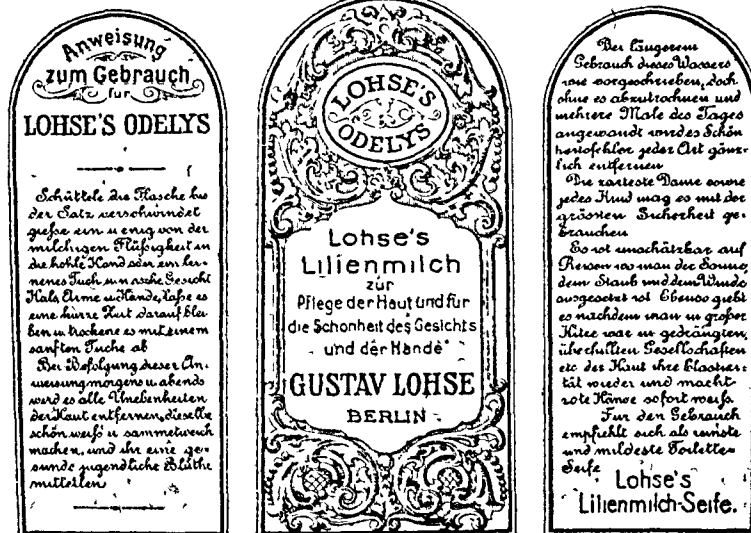 Anweisung
zum Gebrauch
für
LOHSE'S ODELYS
Schüttele die Flasche bis
der Satz verschwindet
giesse ein wenig von der
milchigen Flüssigkeit in
die hohle Hand oder ein lei-
nenes Tuch u wasche Gesicht
Hals, Arme u Hände, laße es
eine kurze Zeit darauf blei
ben u. trockene es mit einem
sanften Tuche ab
Bei Befolgung dieser An-
weisung morgens u abends
wird es alle Unebenheiten
der Haut entfernen, dieselbe
schön weiß u sammetweich
machen, und ihr eine ge-
sunde jugendliche Blüthe
mitteilen
LOHSE'S
ODELYS
Lohse's
Lilienmilch
zur
Pflege der Haut und für
die Schönheit des Gesichts
und der Hände
GUSTAV LOHSE
BERLIN
Bei längerem
Gebrauch dieses Wassers
wie vorgeschrieben, doch
ohne es abzutrocknen und
mehrere Male des Tages
angewandt wird es Schön
heitsfehler jeder Art gänz-
lich entfernen
Die zarteste Dame sowie
jedes Kind mag es mit der
grössten Sicherheit ge
brauchen
Es ist unschätzbar auf
Reisen wo man der Sonne,
dem Staub und dem Winde
ausgesetzt ist Ebenso giebt
es nachdem man in großer
Hitze war in gedrängten,
überfüllten Gesellschaften
etc der Haut ihre Elastici-
tät wieder und macht
rote Hände sofort weiß.
Fur den Gebrauch
empfiehlt sich als reinste
und mildeste Toiletten
Seife
Lohse's
Lilienmilch-Seife.